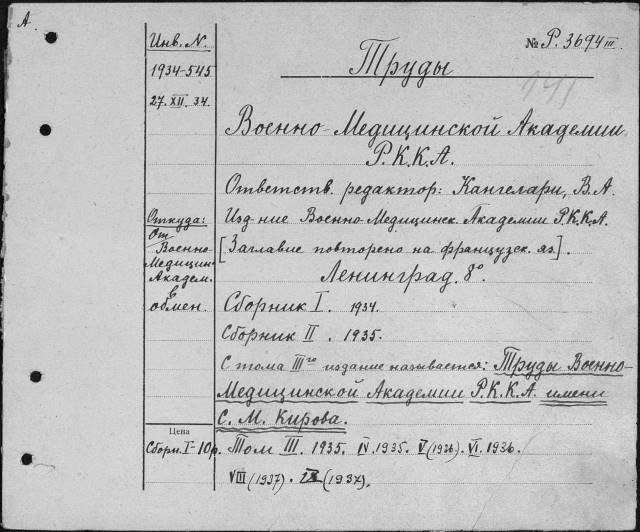 А.
Инв. N.
1934-545
27.XII.34.
№ Р. 3694 III.
Труды
Военно-Медицинской Академии
Р.К.К.А.
Ответств. редактор: Кангелари, В.А.
Откуда:
От
Военно-
Медицин-
Академ.
в
обмен.
Изд-ние Военно-Медицинск. Академии Р.К.К.А.
[Заглавие повторено на французск. яз.].
Ленинград. 8°.
Сборник I. 1934.
Сборник II. 1935.
С тома III го издание называется: Труды Военно-
Медицинской Академии Р.К.К.А. имени
С. М. Кирова.
Цена
Сборн. I-10р.
Том III. 1935. IV. 1935. V (1936). VI. 1936.
VIII (1937). IX (1937).